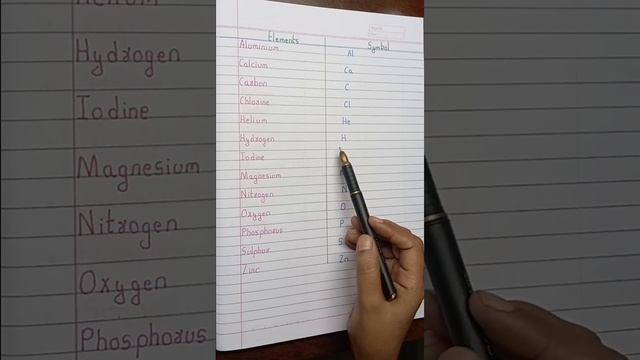 Elements Symbol
Aluminium Al
Calcium Ca
Carbon C
Chlorine Cl
Helium He
Hydrogen H
Iodine
Magnesium
Nitrogen N
Oxygen O
Phosphorus P
Sulphur S
Zinc Zn
Hydrogen
Iodine
Magnesium
Nitrogen
Oxygen
Phosphorus